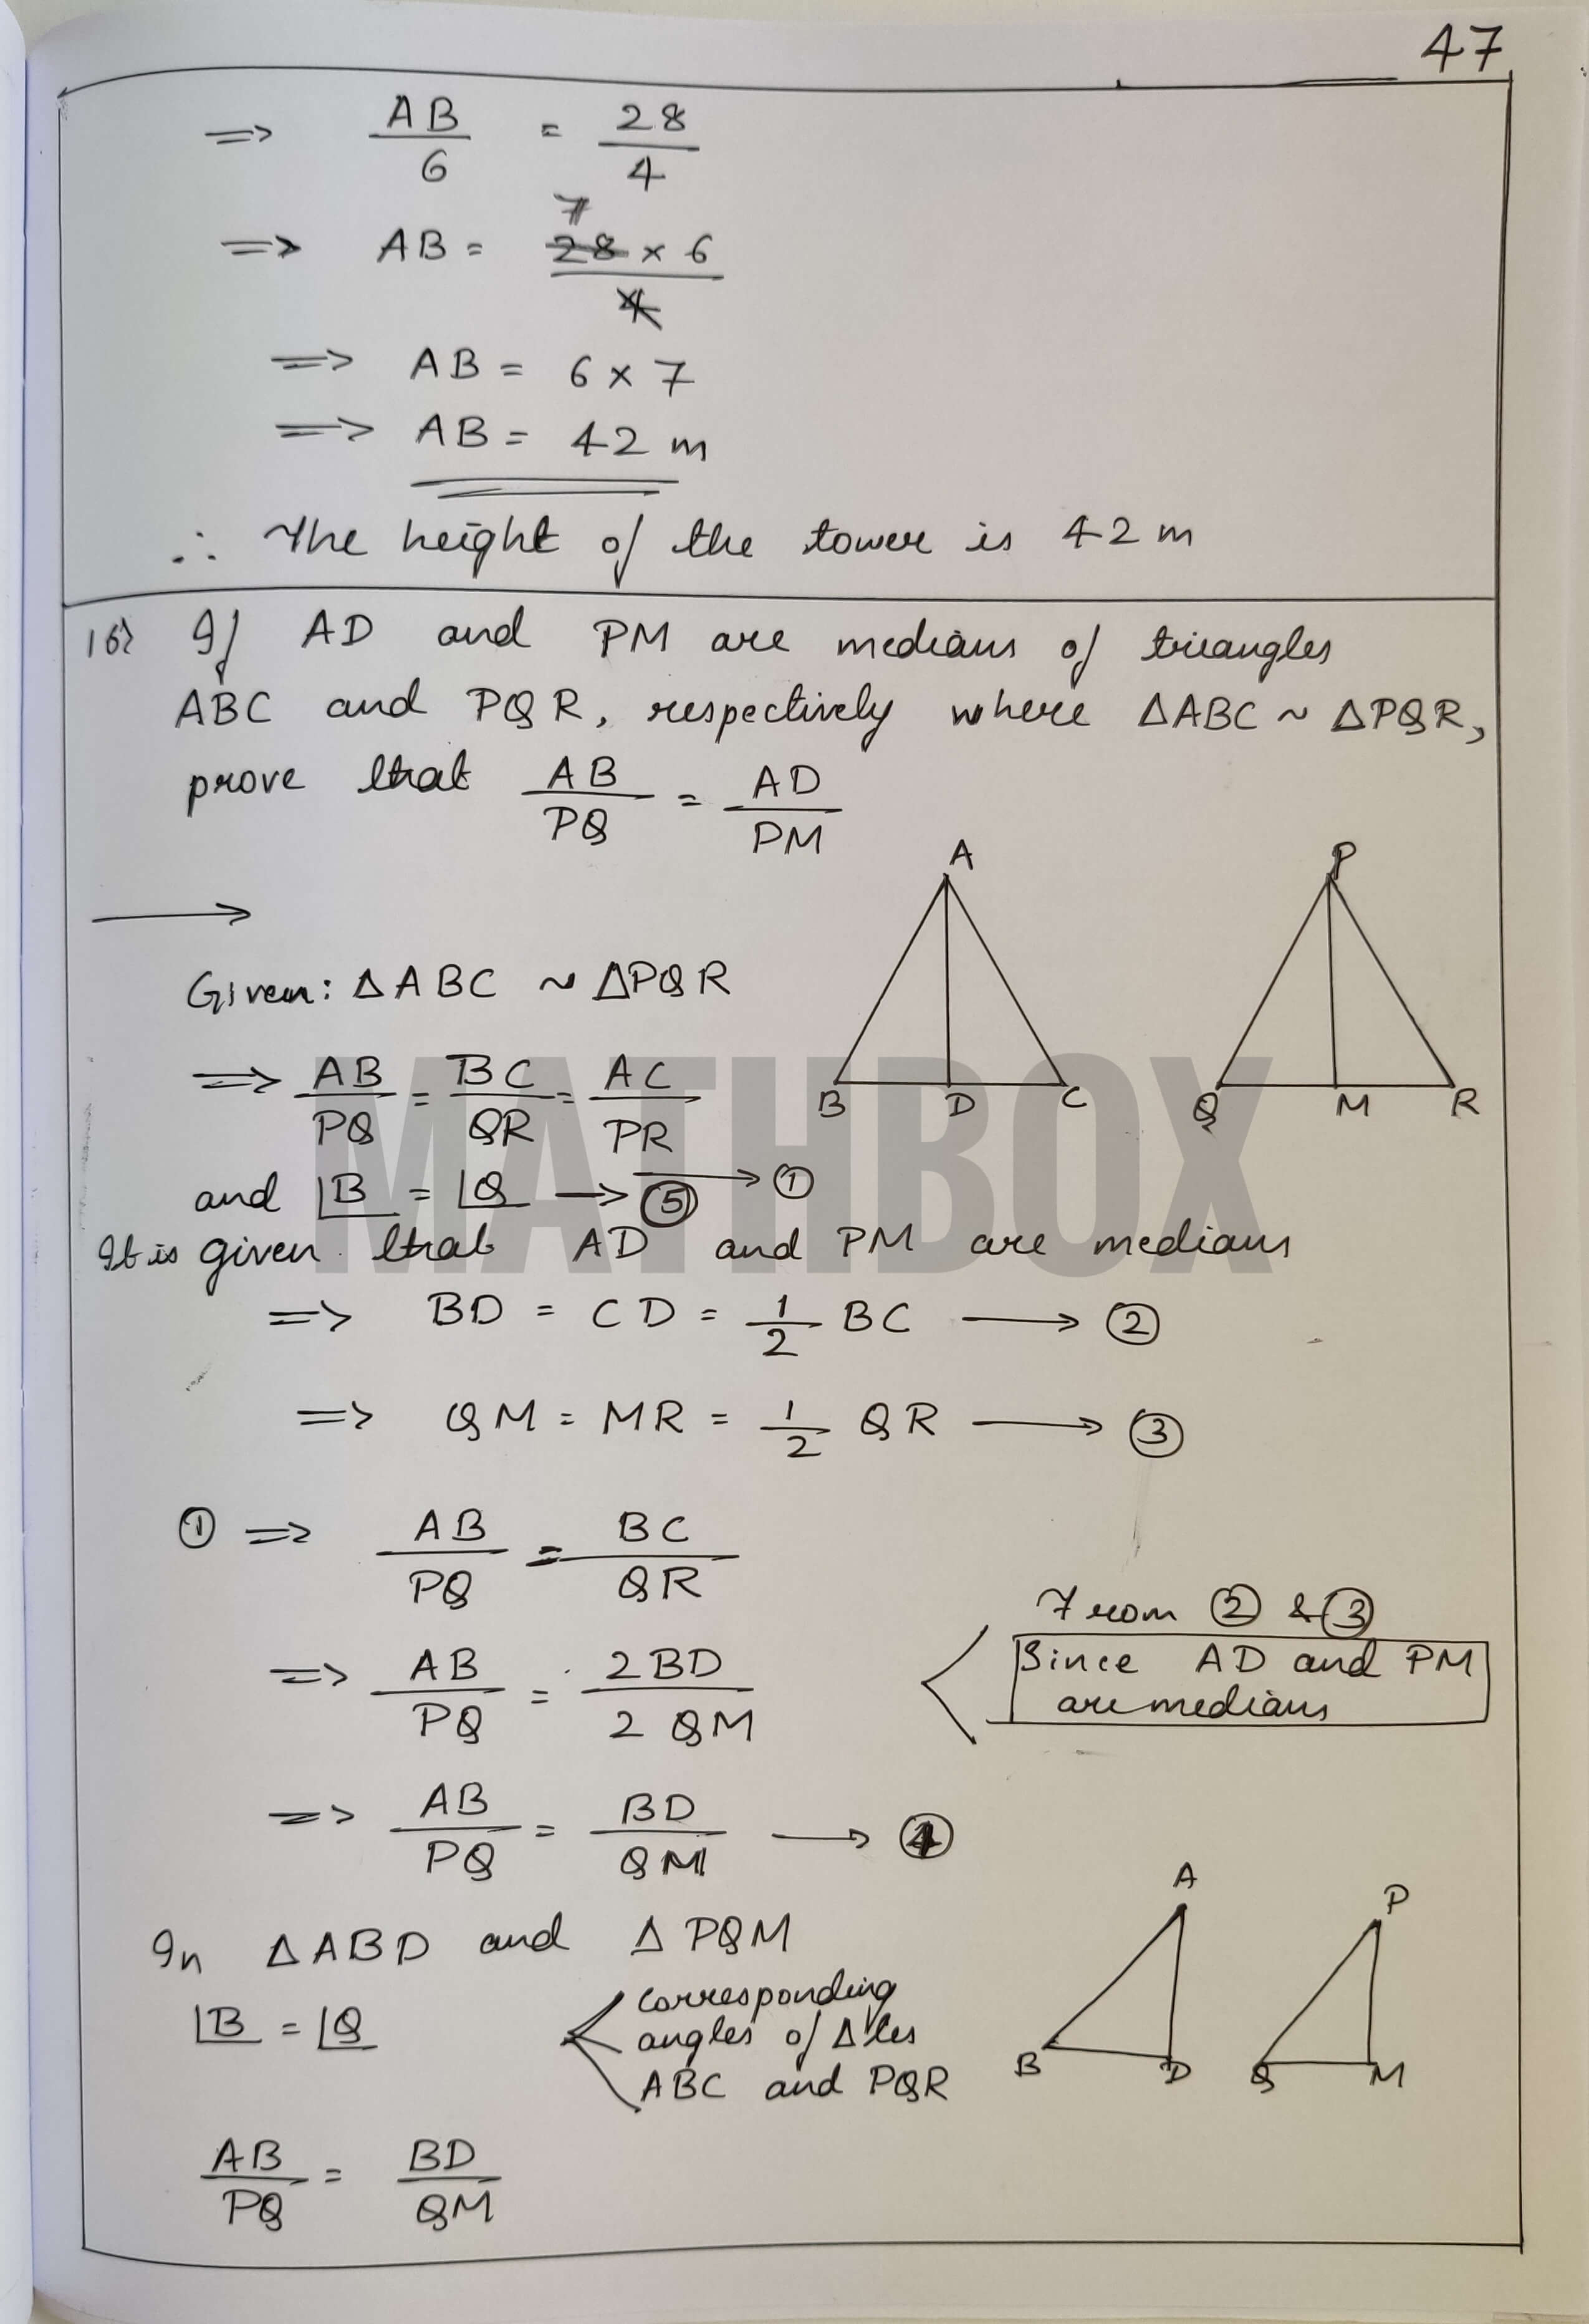 47
=> AB/6 = 28/4
=> AB = 28 × 6 / 4
7
=> AB = 6 × 7
=> AB = 42 m
∴ The height of the tower is 42 m
16) If AD and PM are medians of triangles
ABC and PQR, respectively where ΔABC ~ ΔPQR,
prove that AB/PQ = AD/PM
A
P
B D C
Q M R
Given: ΔABC ~ ΔPQR
=> AB/PQ = BC/QR = AC/PR → ①
and ∠B = ∠Q → ⑤
It is given that AD and PM are medians
=> BD = CD = 1/2 BC → ②
=> QM = MR = 1/2 QR → ③
① => AB/PQ = BC/QR
From ② & ③
=> AB/PQ = 2BD/2QM
Since AD and PM
are medians
=> AB/PQ = BD/QM → ④
In ΔABD and ΔPQM
∠B = ∠Q
corresponding
angles of Δles
ABC and PQR
A
P
B D
Q M
AB/PQ = BD/QM
MATHBOX